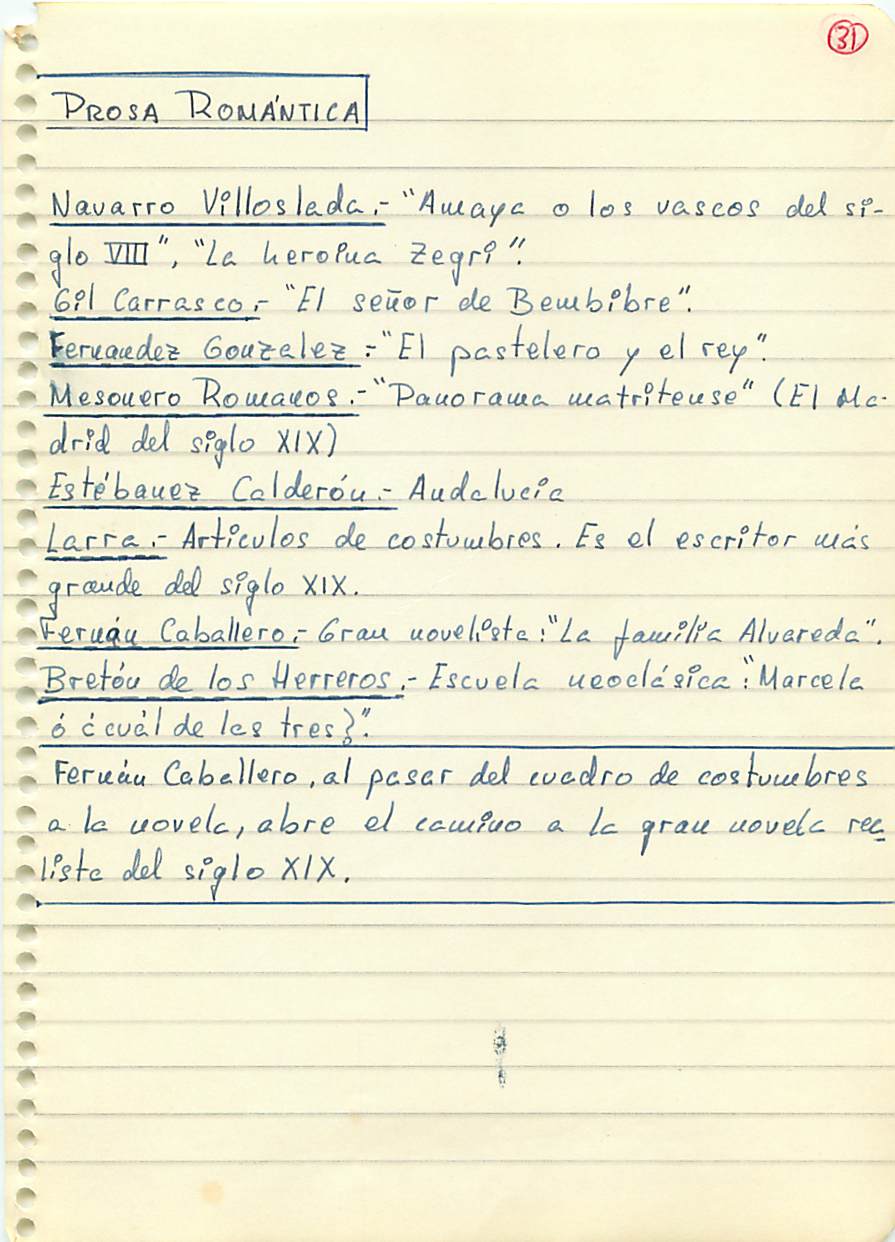 31
PROSA ROMÁNTICA
Navarro Villoslada.- "Amaya o los vascos del si-
glo VIII", "La heroina Zegri".
Gil Carrasco.- "El señor de Bembibre".
Fernandez Gonzalez.- "El pastelero y el rey".
Mesonero Romanos.- "Panorama matritense" (El Ma-
drid del siglo XIX)
Estébanez Calderón.- Andalucía
Larra.- Articulos de costumbres. Es el escritor más
grande del siglo XIX.
Fernán Caballero.- Gran novelista: "La familia Alvareda".
Bretón de los Herreros.- Escuela neoclásica: "Marcela
ó ¿cuál de las tres?".
Fernán Caballero, al pasar del cuadro de costumbres
a la novela, abre el camino a la gran novela rea
lista del siglo XIX.